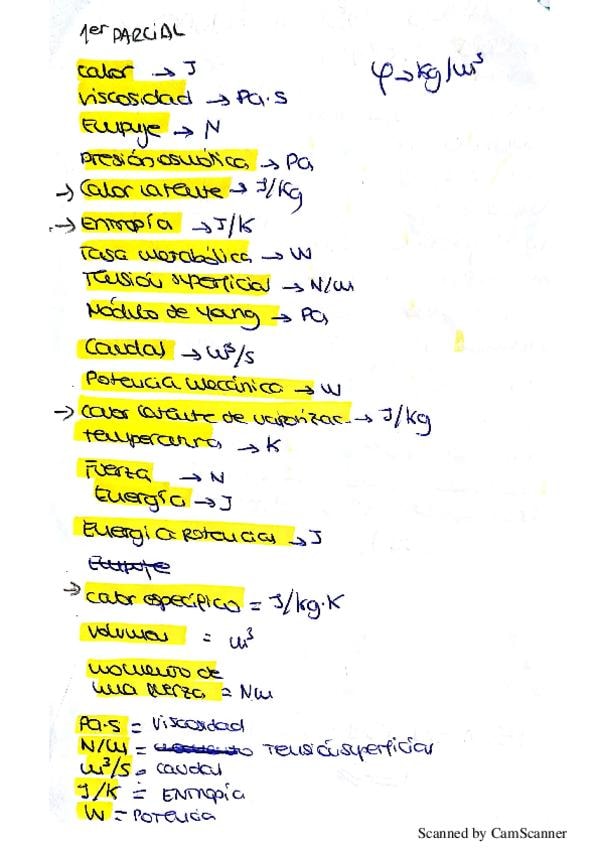 1er PARCIAL
calor → J
φ → kg/m³
viscosidad → Pa·s
Empuje → N
Presión osmótica → Pa
→ Calor latente → J/Kg
→ Entropía → J/K
Tasa metabólica → W
Tensión superficial → N/m
Módulo de Young → Pa
Caudal → m³/s
Potencia mecánica → W
→ calor latente de vaporizac. → J/kg
temperatura → K
Fuerza → N
Energía → J
Energía Potencial → J
Empuje
→ calor específico = J/kg·K
volumen = m³
momento de
una fuerza = Nm
Pa·s = Viscosidad
N/m = momento Tensión superficial
m³/s = caudal
J/K = Entropía
W = Potencia
Scanned by CamScanner